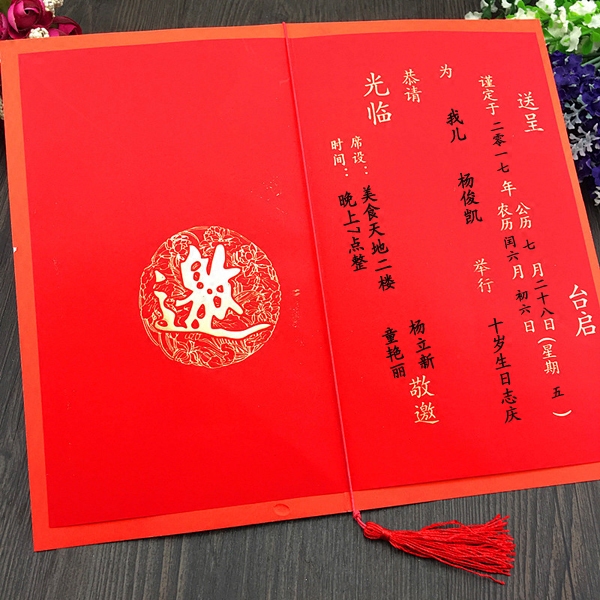 送呈
台启
谨定于二零一七年 公历七月二十八日(星期五)
农历闰六月初六日
为我儿 杨俊凯 举行 十岁生日志庆
恭请
光临
杨立新
童艳丽 敬邀
席设：美食天地二楼
时间：晚上7点整
邀